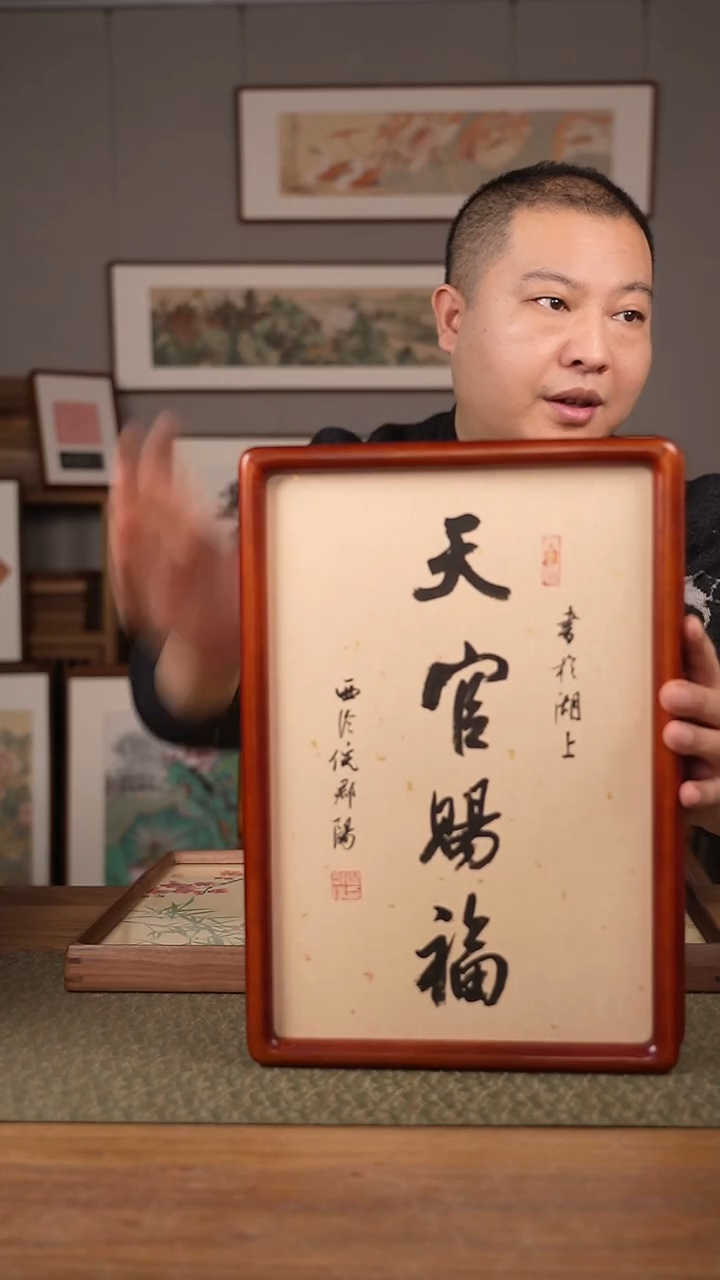 書於湖上
天官賜福
西泠倪郡陽